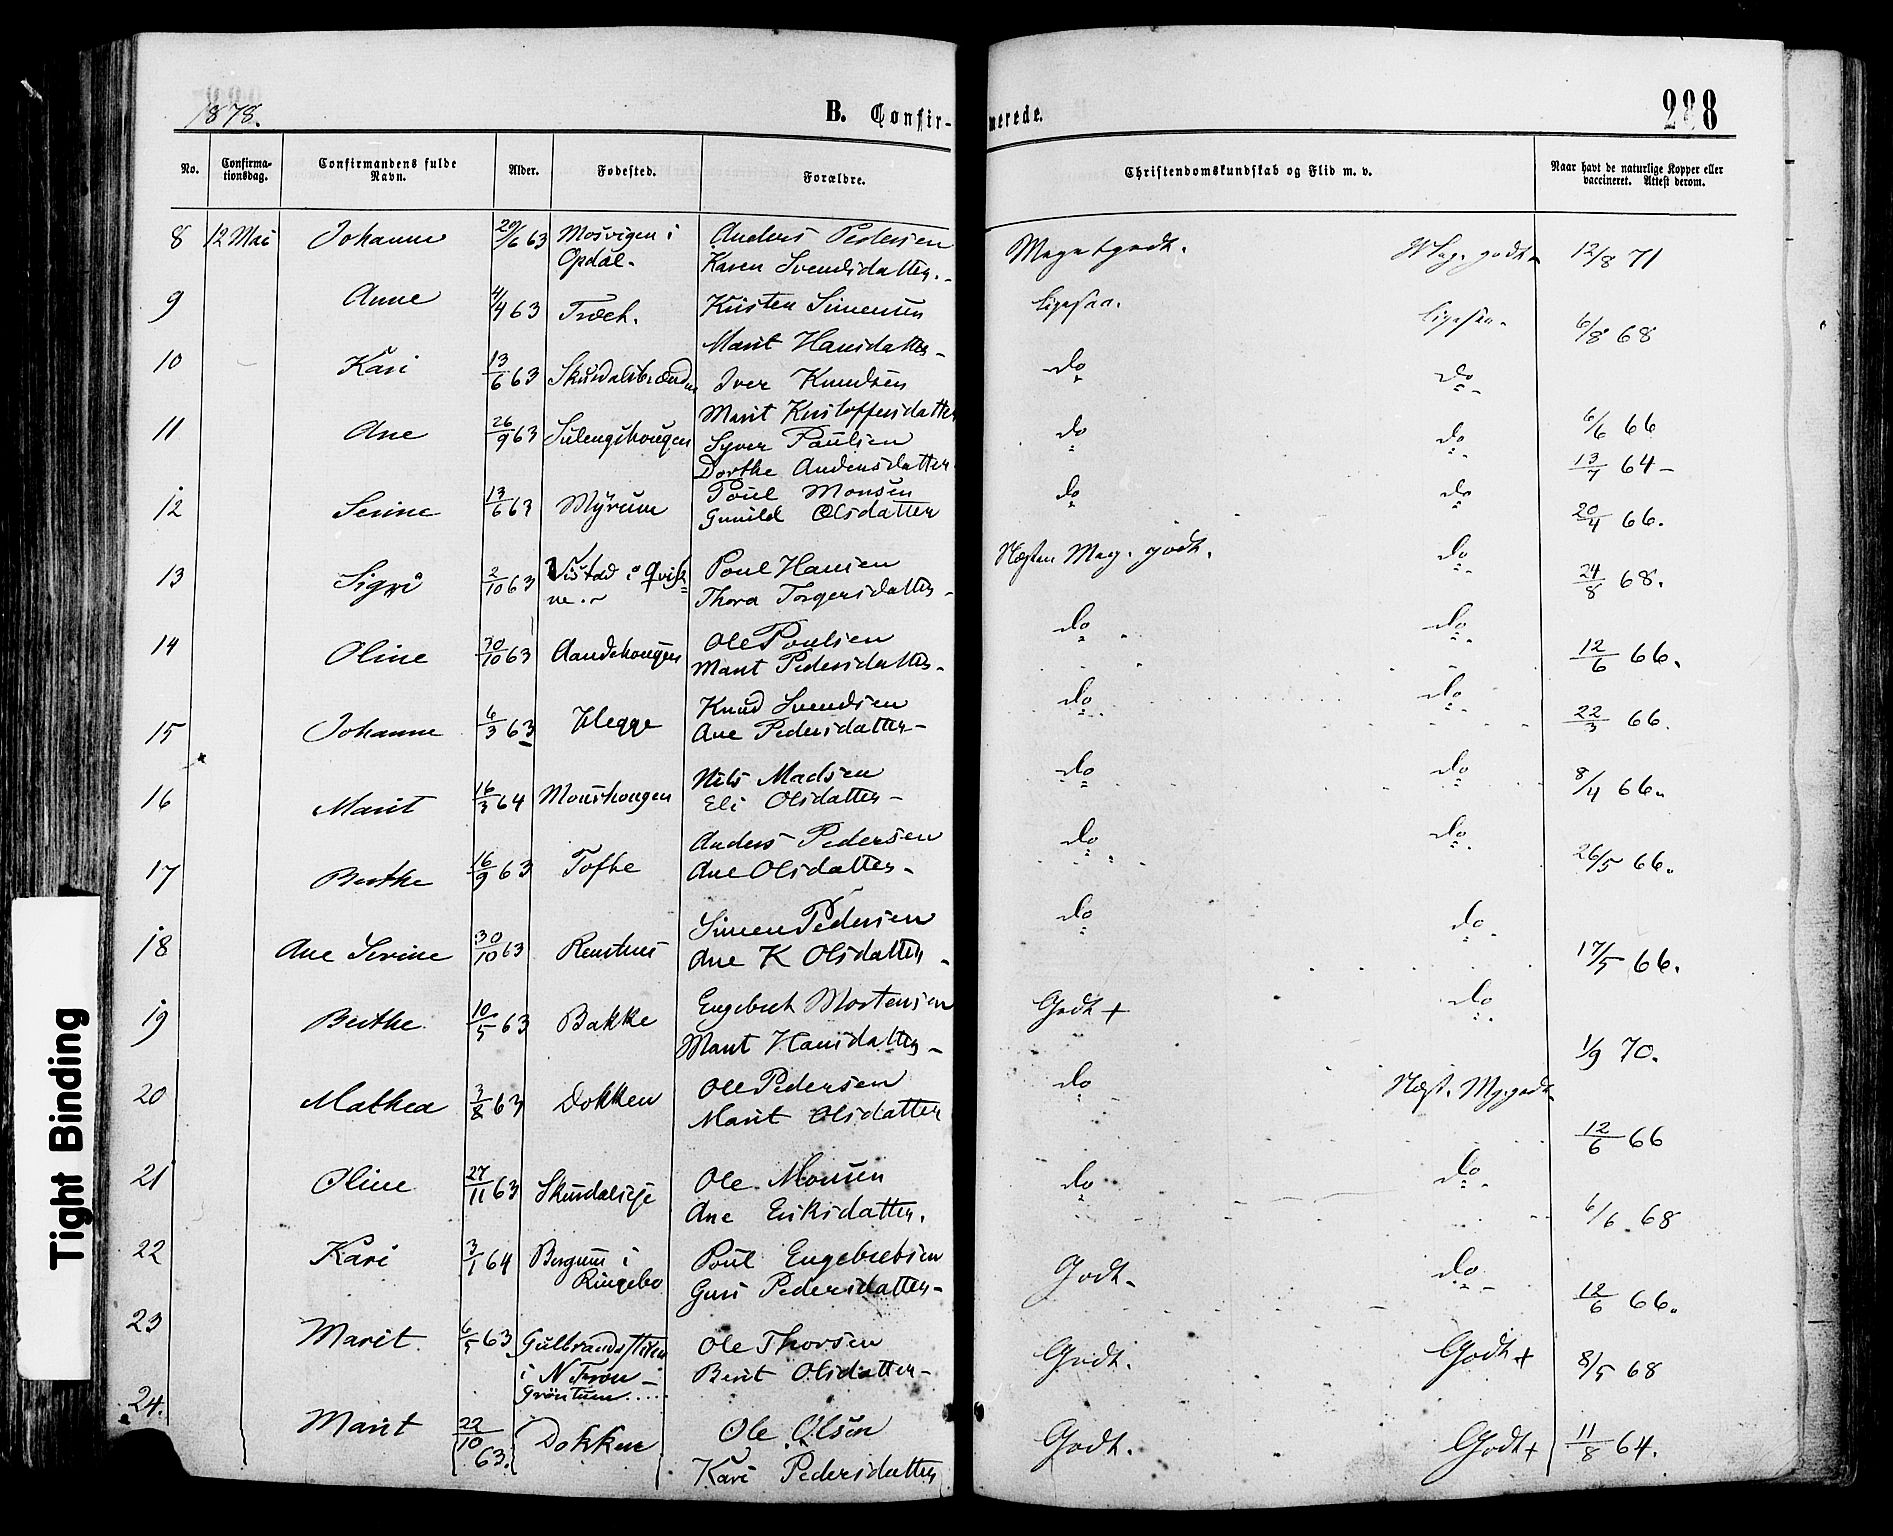 1878.
B. Confirmerede.
228
No.
Confirma-
tionsdag.
Confirmandens fulde
Navn.
Alder.
Fødested.
Forældre.
Christendomskundskab og Flid m. v.
Naar havt de naturlige Kopper eller
vaccineret. Attest derom.
8 12 Mai Johanne 20/6 63 Mosvigen i Anders Pedersen Meget godt. Meg. godt 12/8 71
Opdal. Karen Svendsdatter.
9 Anne 4/4 63 Kristen Simensen ligesaa. ligesaa. 6/8 68
Marit Hansdatter
10 Kari 13/6 63 Iver Knudsen do do 6/6 66
Marit Kristoffersdatter
11 Ane 26/9 63 Sulengshougen Syver Paulsen do do 13/7 64
Dorthe Andersdatter
12 Serine 13/6 63 Myrum Poul Monsen do do 20/4 66.
Gunild Olsdatter
13 Sigri 2/10 63 Vistad i Qvik Poul Hansen Næsten Meg. godt. do 24/8 68.
ne. Thora Torgersdatter
14 Oline 30/10 63 Aandehougen Ole Poulsen do do 12/6 66.
Marit Pedersdatter
15 Johanne 6/3 63 Hegge Knud Svendsen do do 22/3 66.
Ane Pedersdatter
16 Marit 16/3 64 Monshougen Nils Madsen do do 8/4 66.
Eli Olsdatter
17 Berthe 16/9 63 Tofte Anders Pedersen do do 26/5 66.
Ane Olsdatter
18 Ane Serine 30/10 63 Rusthus Simen Pedersen do do 17/5 66.
Ane K Olsdatter
19 Berthe 10/5 63 Bakke Engebret Mortensen Godt + do 1/9 70.
Marit Hansdatter
20 Mathea 7/8 63 Dokken Ole Pedersen do Næst. Mg. godt 12/6 66
Marit Olsdatter
21 Oline 27/11 63 Ole Monsen do do 6/6 68
Ane Eriksdatter.
22 Kari 3/1 64 Bergum i Poul Engebretsen Godt do 12/6 66.
Ringebo Guri Pedersdatter
23 Marit 6/5 63 Ole Thorsen Godt. Godt + 8/5 68
i N Fron Berit Olsdatter
Gröntuen....
24. Marit 22/10 63. Dokken Ole Olsen Godt. Godt + 11/8 64.
Kari Pedersdatter
Tight Binding